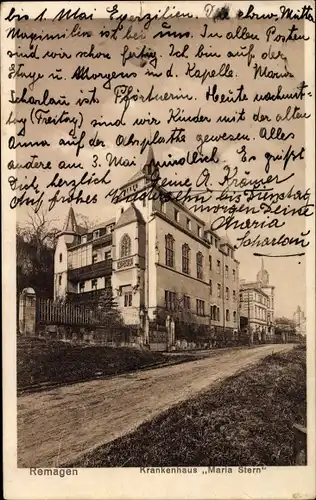 bis 1. Mai Exerzitien. Die ehrw. Mutter
Maximiliae ist bei uns. In allen Posten
sind wir schon fertig. Ich bin auf der
Etage u. Morgens in d. Kapelle. Maria
Scharlau ist Pförtnerin. Heute nachmit-
tag (Freitag) sind wir Kinder mit der alten
Anna auf der Ahrplatte gewesen. Alles
andere am 3. Mai mündlich. Es grüßt
Dich herzlich Deine A. Krämer
Auf frohes Wiedersehn bis Dienstag
morgen Deine
Maria
Scharlau
Remagen Krankenhaus „Maria Stern"